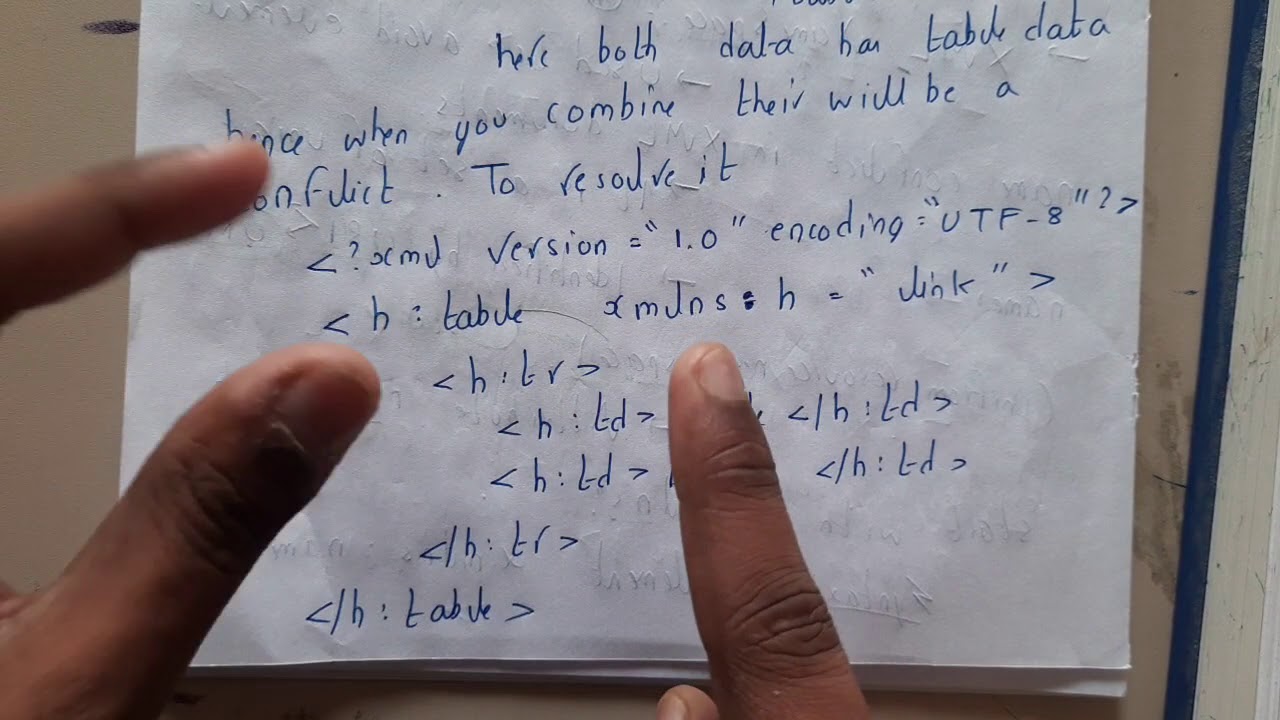 here both data has table data
hence when you combine their will be a
conflict . To resolve it
<?xml version = "1.0" encoding = "UTF-8"?>
<h : table xmlns : h = "link">
<h : tr>
<h : td> </h : td>
<h : td> </h : td>
</h : tr>
</h : table>